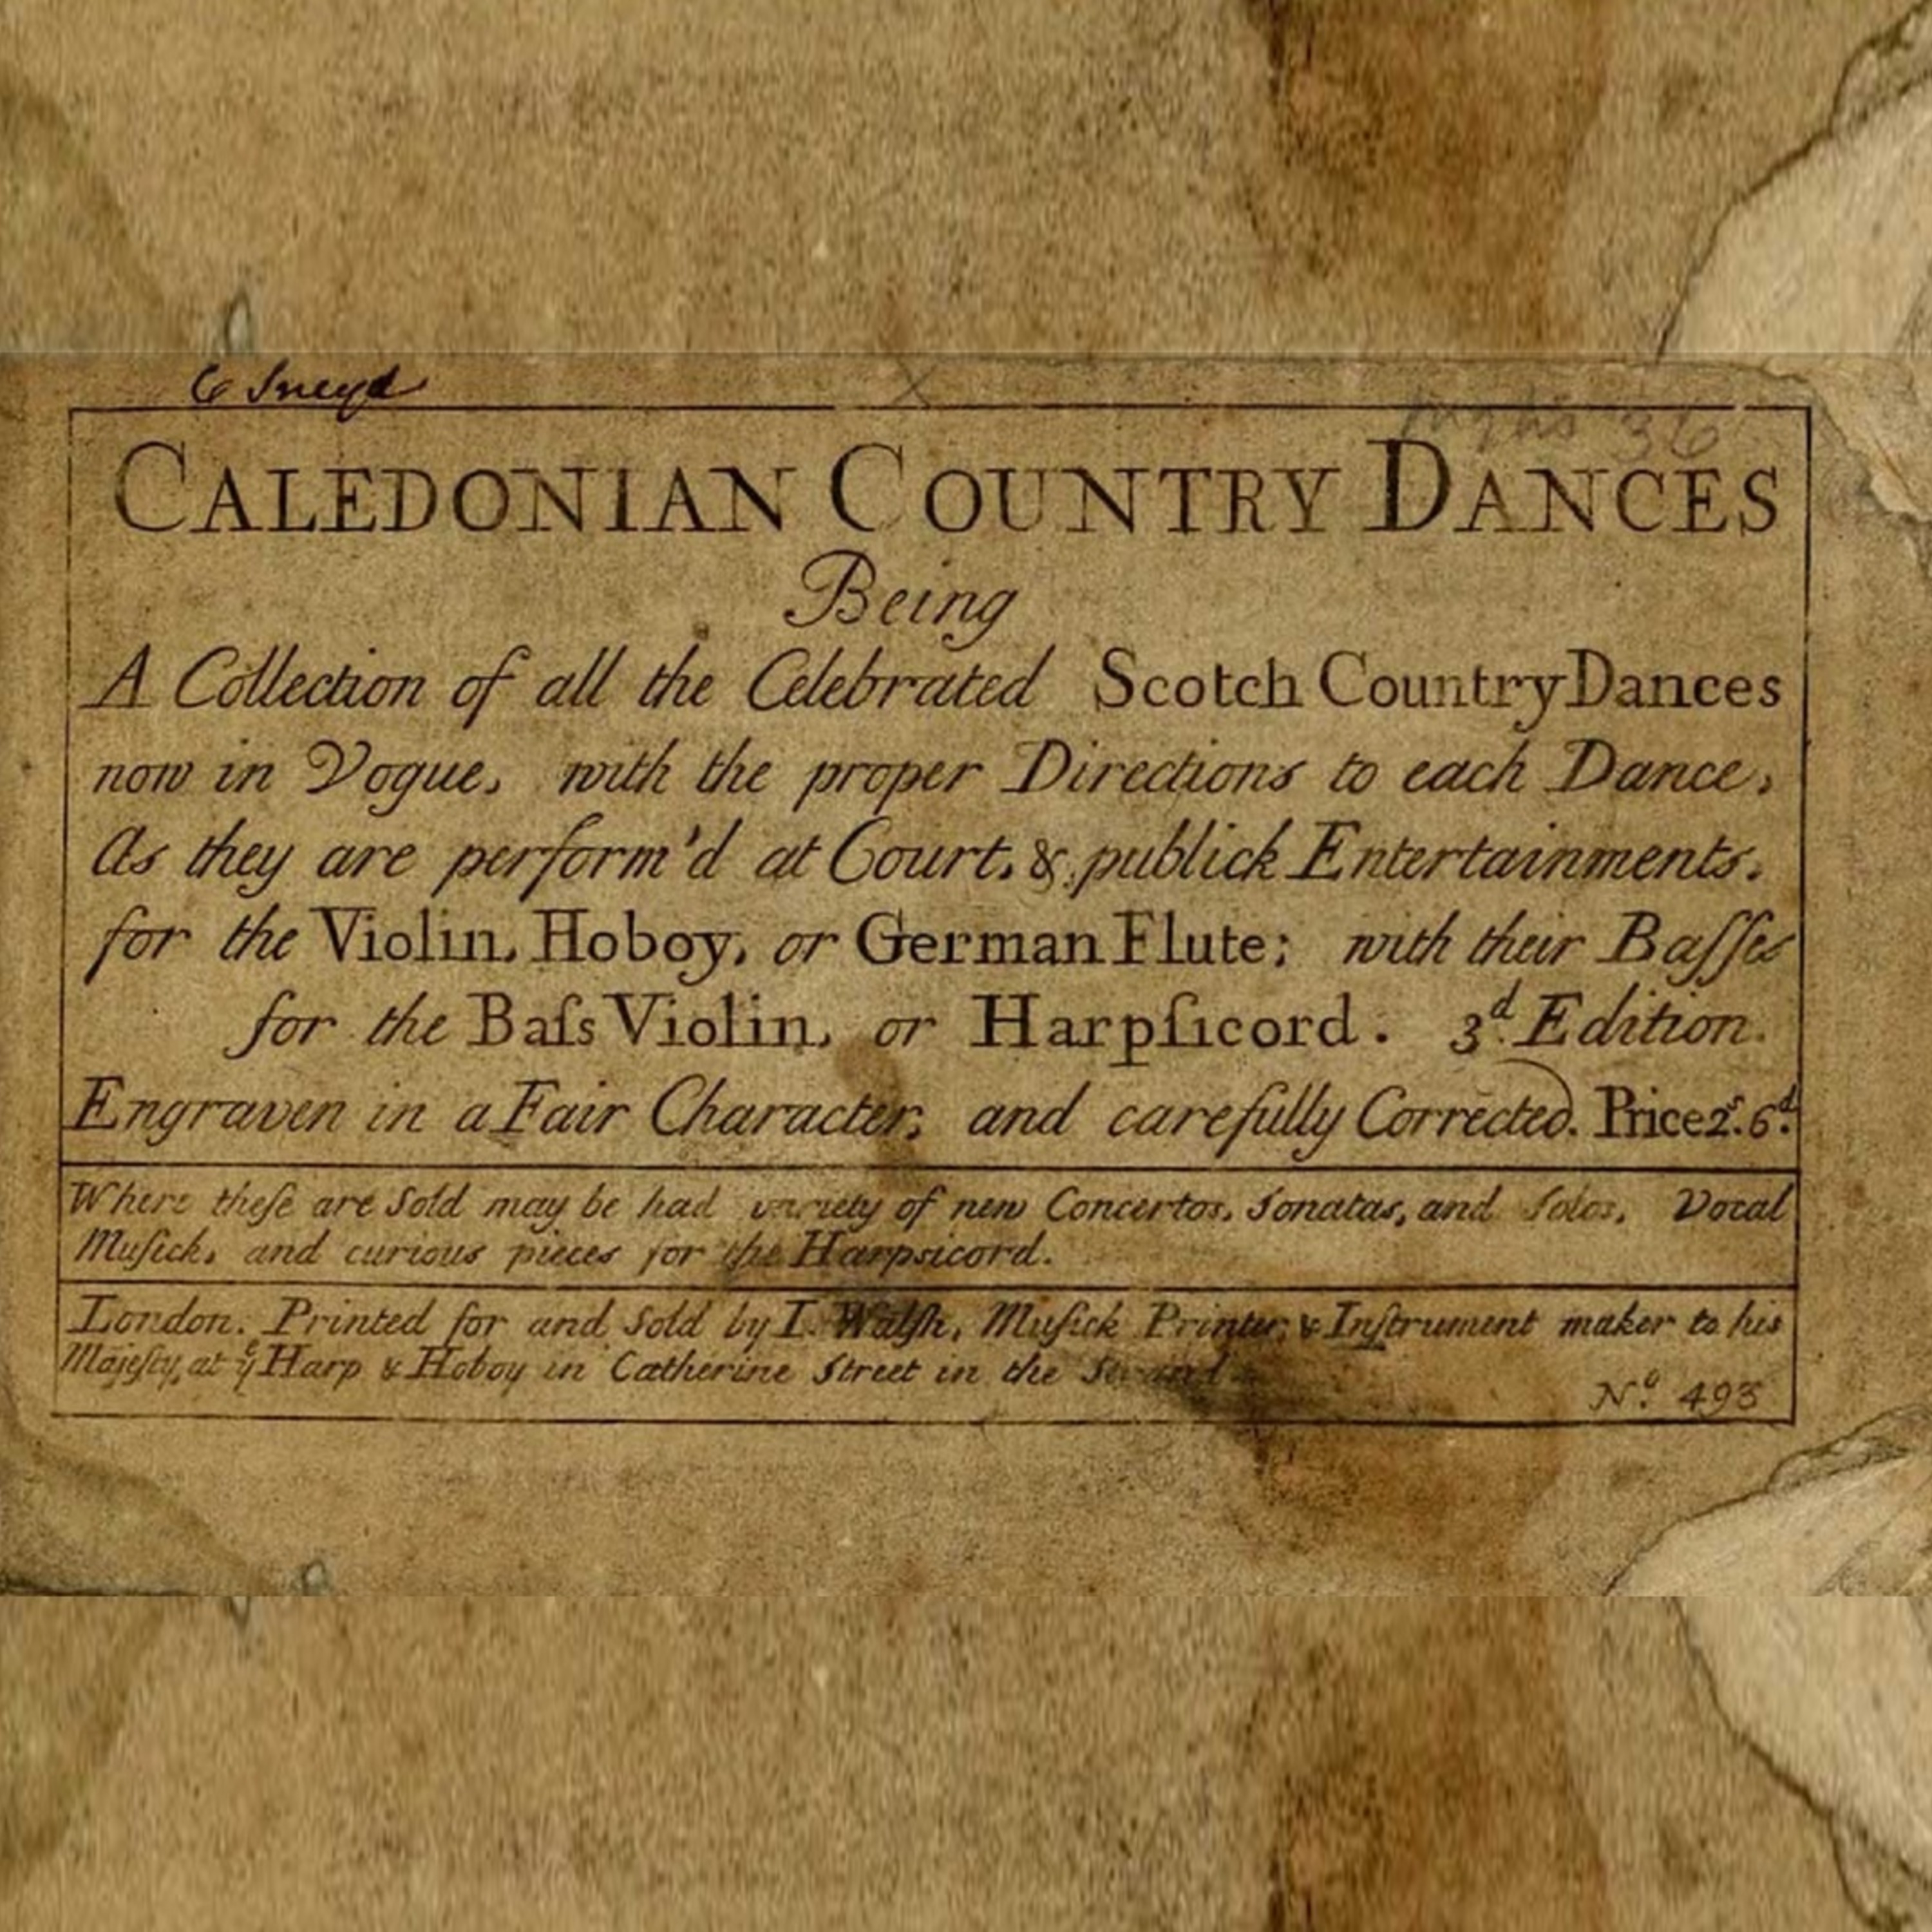 C Sneyd
36
CALEDONIAN COUNTRY DANCES
Being
A Collection of all the Celebrated Scotch Country Dances
now in Vogue, with the proper Directions to each Dance,
As they are perform'd at Court, & publick Entertainments,
for the Violin, Hoboy, or German Flute; with their Baſſes
for the Baſs Violin, or Harpſicord. 3d. Edition.
Engraven in a Fair Character, and carefully Corrected. Price 2s. 6d.
Where theſe are Sold may be had variety of new Concertos, Sonatas, and Solos, Vocal
Muſick, and curious pieces for the Harpsicord.
London. Printed for and Sold by I. Walſh, Muſick Printer, & Inſtrument maker to his
Majeſty, at ye Harp & Hoboy in Catherine Street in the Strand.
No. 493